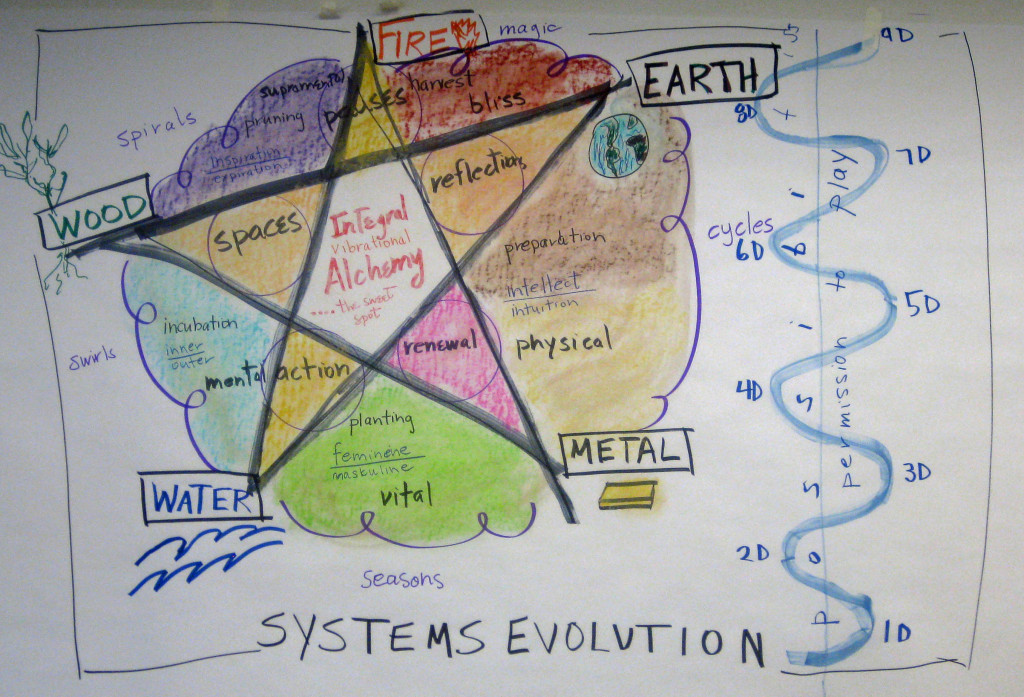 FIRE
magic
EARTH
9D
8D
7D
6D
5D
4D
3D
2D
1D
spirals
pruning
Inspiration
expiration
pauses
harvest
bliss
WOOD
spaces
reflection
Integral
Vibrational
Alchemy
....the sweet
spot
preparation
intellect
intuition
physical
cycles
swirls
incubation
inner
outer
mental
action
renewal
planting
feminene
maskuline
vital
METAL
WATER
seasons
SYSTEMS EVOLUTION
permission to play